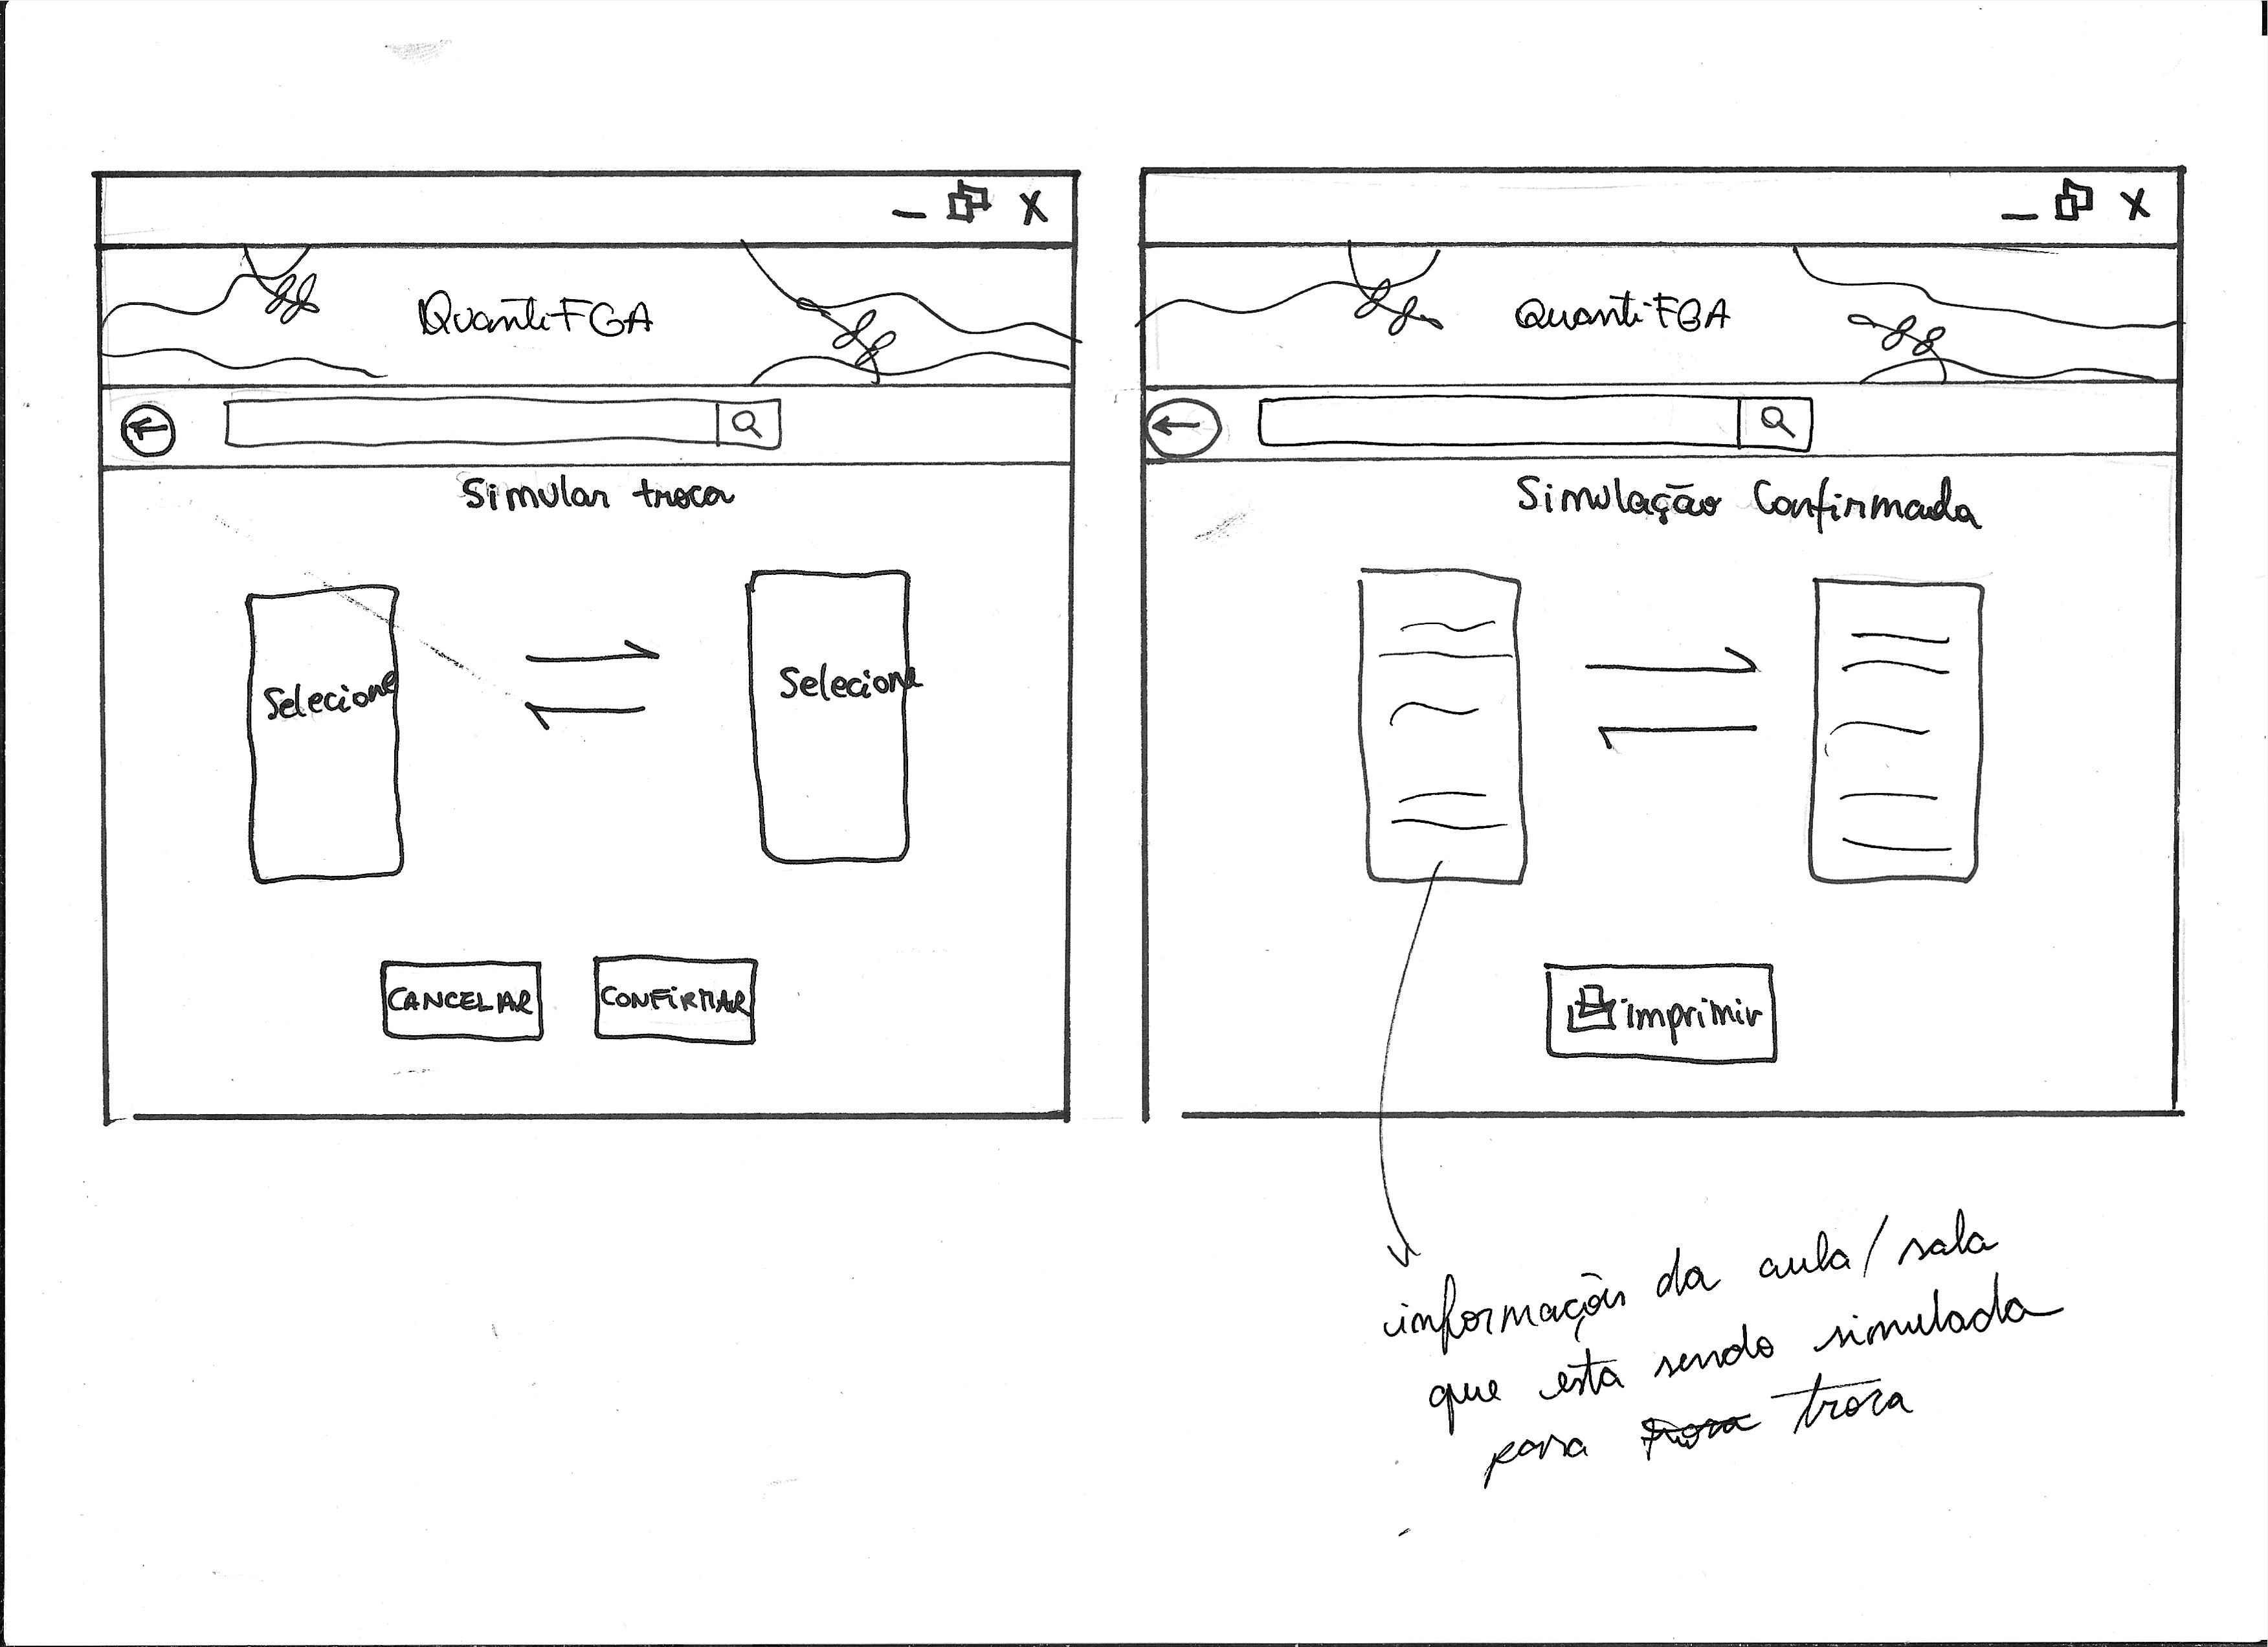 QuantiFGA
Simular troca
Selecione
Selecione
CANCELAR
CONFIRMAR
QuantiFGA
Simulação Confirmada
imprimir
informações da aula/sala
que esta sendo simulada
para troca